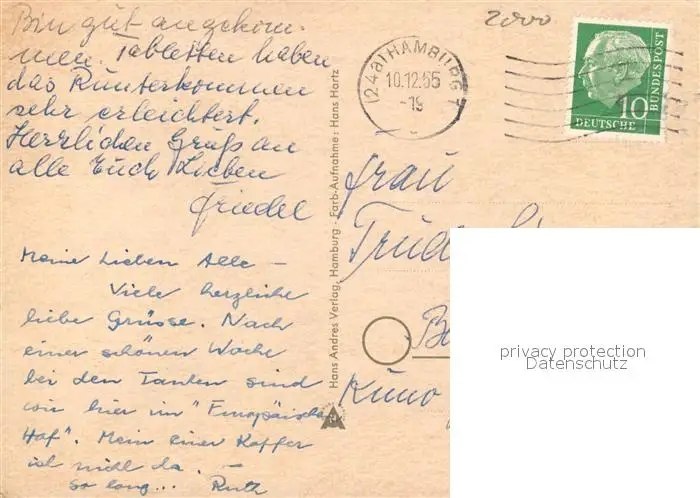 Bin gut angekom-
men. Tabletten haben
das Runterkommen
sehr erleichtert.
Herrlichen Gruß an
alle Euch Lieben
Friedel
Meine Lieben Alle –
Viele herzliche
liebe Grüsse. Nach
einer schönen Woche
bei den Tanten sind
wir hier im "Europäischen
Hof". Mein einer Koffer
ist nicht da.
So long... Ruth
Hans Andres Verlag, Hamburg · Farb-Aufnahme: Hans Hartz
2000
(24a) HAMBURG 7
10.12.55
-19
DEUTSCHE
BUNDESPOST
10
Frau
Kuno
privacy protection
Datenschutz